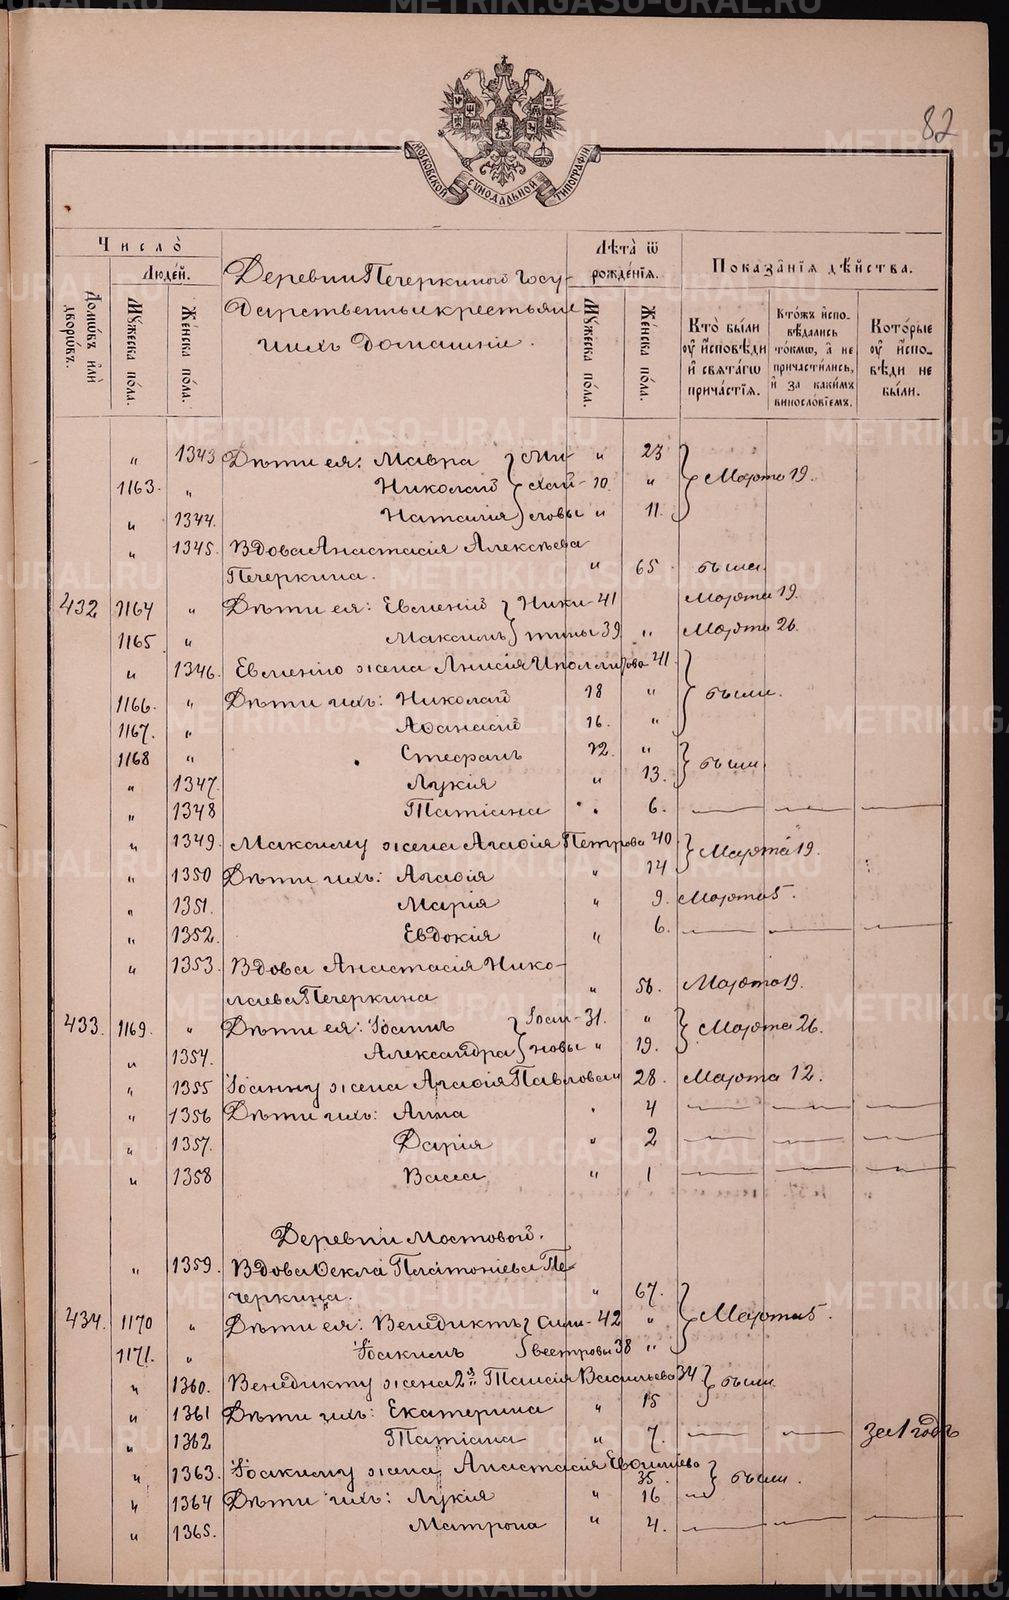 82
МОСКОВСКОЙ СѴНОДАЛЬНОЙ ТИПОГРАФИИ
Число̀
Люде́й.
Домѡ́въ и҆лѝ дворѡ́въ.
Мꙋ́жеска по́ла.
Же́нска по́ла.
Деревни Печеркиной Госу-
дарственные крестьяне
и ихъ домашніе.
Лѣ́та ѿ рожде́нїѧ.
Мꙋ́жеска по́ла.
Же́нска по́ла.
Показа̑нїѧ дѣ́йства.
Кто̀ бы́ли ᲂу҆ и҆сповѣ́ди и҆ свѧта́гѡ прича́стїѧ.
Кто́жъ и҆спо-вѣ́дались то́кмѡ, а҆ не причасти́лись, и҆ за каки́мъ виносло́вїемъ.
Кото́рые ᲂу҆ и҆спо-вѣ́ди не бы́ли.
" 1343 Дѣти ея: Мавра } Ми- " 23
1163. " Николай } хай- 10. " } Марта 19.
" 1344. Наталія } ловы " 11.
" 1345. Вдова Анастасія Алексѣева
Печеркина. " 65. была.
432 1164 " Дѣти ея: Евмений } Ники- 41 Марта 19.
1165 " Максимъ } тины 39 " Марта 26.
" 1346. Евмению жена Анисія Ипполитова 41.
1166. " Дѣти ихъ: Николай 18 " } были.
1167. " Аѳанасій 16. "
1168 " Стефанъ 12. " } были.
" 1347. Лукія " 13.
" 1348 Татіана " 6. — — —
" 1349. Максиму жена Агафія Петрова 40 } Марта 19.
" 1350 Дѣти ихъ: Агафія " 14
" 1351. Марія " 9. Марта 5.
" 1352. Евдокія " 6. — — —
" 1353. Вдова Анастасія Нико-
лаева Печеркина " 56. Марта 19.
433. 1169. " Дѣти ея: Іоаннъ } Іоан- 31. " } Марта 26.
" 1354. Александра } новы " 19.
" 1355 Іоанну жена Агафія Павлова " 28. Марта 12.
" 1356 Дѣти ихъ: Анна " 4 — — —
" 1357. Дарія " 2 — — —
" 1358 Васса " 1 — — —
Деревни Мостовой.
" 1359. Вдова Ѳекла Платоніева Пе-
черкина. " 67.
434. 1170 " Дѣти ея: Венедиктъ } Сили- 42 " } Марта 5.
1171. " Іоакимъ } вестровы 38 "
" 1360. Венедикту жена 2я Таисія Васильева 34 } были
" 1361 Дѣти ихъ: Екатерина " 15
" 1362 Татіана " 7. — — за 1 годъ
" 1363. Іоакиму жена Анастасія
35. } были.
" 1364 Дѣти ихъ: Лукія " 16
" 1365. Матрона " 4. — — —
METRIKI.GASO-URAL.RU